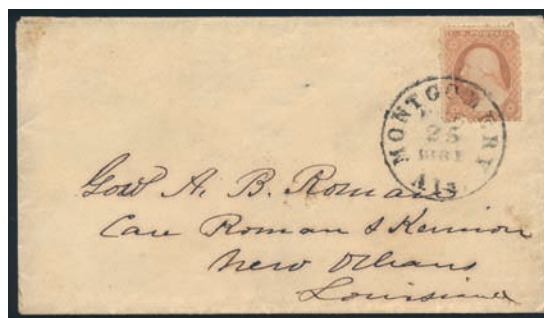 U.S. POSTAGE
MONTGOMERY
25
1861
Ala.
Gov A. B. Roman
Care Roman & Kernion
New Orleans
Louisiana